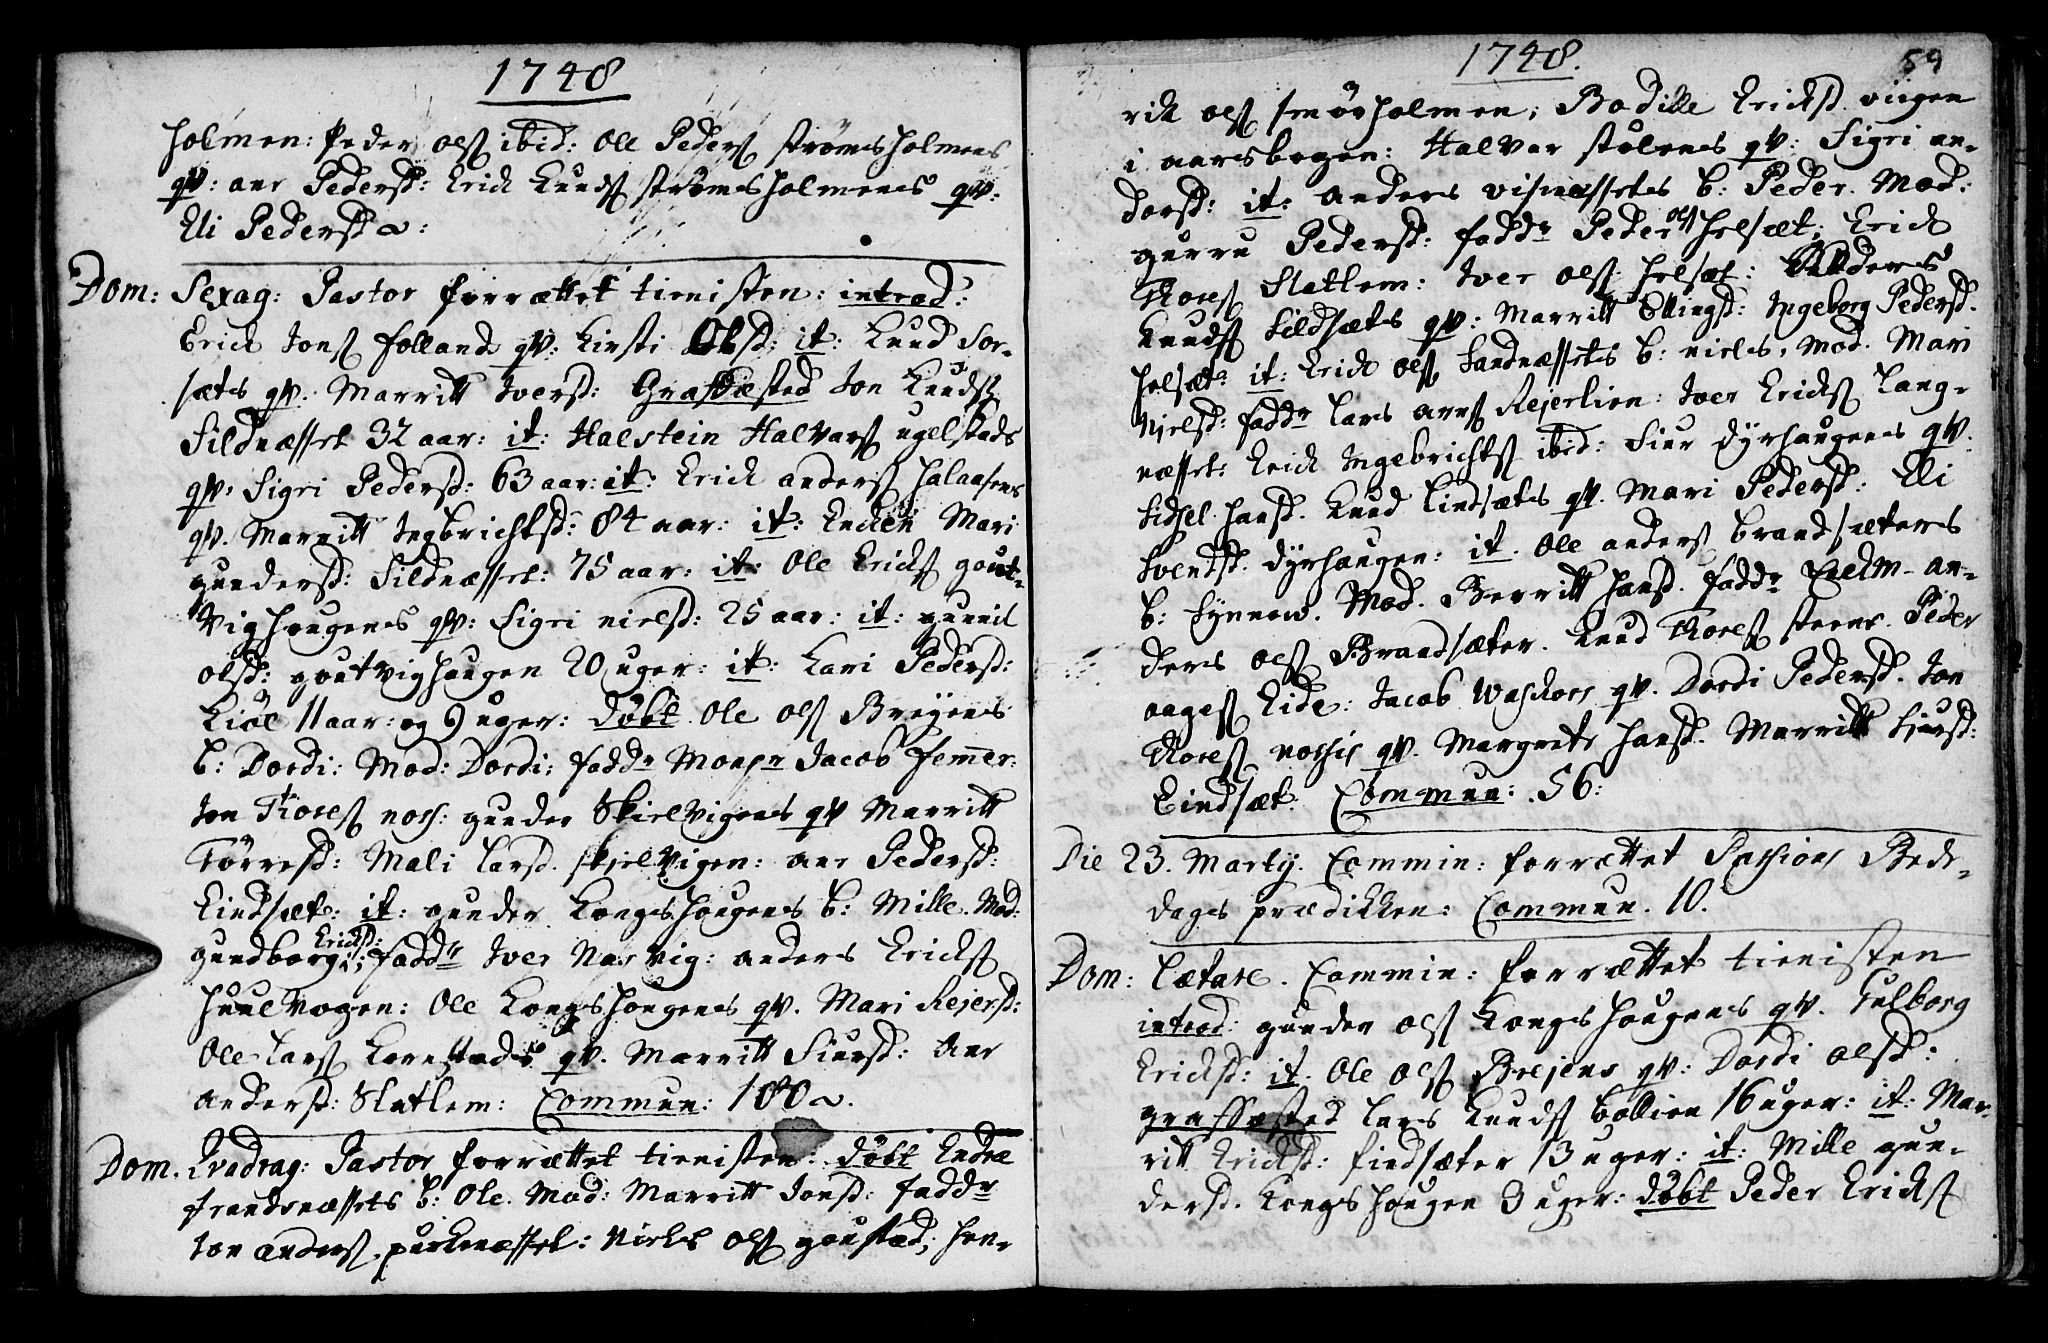 1748
holmen: Peder Ols ibid: Ole Peders strømsholmens
qv: ane Pedersd: Erick Knuds strømsholmens qv:
Eli Pedersd:
Dom: Sexag: Pastor forrættet tienisten: introd:
Erick Jons folland qv: Kirsti Olsd: it: Knud Sor-
sæts qv. Marritt Iversd: Grafæsted Jon Knuds
Sildnæsset 32 aar: it: Halstein Halvars ugelstads
qv: Sigri Pedersd: 63 aar: it: Erick anders halaasens
qv. Marritt Ingbrichtsd: 84 aar: it: Encken Mari
gundersd: Sildnæsset: 75 aar: it: Ole Ericks gout-
vighougens qv: Sigri nielsd: 25 aar: it: gunnil
olsd: goutvighaugen 20 uger: it: Kari Pedersd:
Kiøl 11 aar: og 9 uger: døbt Ole Ols Breyens
b: Dordi: Mod: Dordi: fadd. Monsr Jacob femmer:
Jon Thores nos: gunder Skielvigens qv Marritt
Tørresd: Mali larsd. skjelvigen: ane Pedersd:
Eindsæt: it: gunder Kongshougens b: Mille. Mod:
gundborg Ericksd: faddr Iver Narvig: anders Ericks
huulvogen: Ole Kongshougens qv. Mari Rejersd:
Ole lars Kornstads qv. Marritt Siursd: ane
andersd: Slatlem: Commun: 100
Dom. Qvadrag: Pastor forrættet tienisten: døbt Endre
strandnæssets b: Ole. Mod: Marritt Jonsd: faddr
Jon anders purkenæsset: Niels Ols goustad; hen-
1748. 59
rik ols smørholmen; Bodille Ericksd viigen
i aarsbogen: Halvar stølenes qv: Sigri an-
dersd: it: anders visnæssets b: Peder. Mod:
gurru Pedersd: faddr Peder ols holsæt; Erick
Thores Slatlem: Iver ols holsæt: Anders
Knuds Sildsæts qv: Marritt Ellingsd: Ingeborg Pedersd.
holsæt: it: Erick ols Sandnæssets b: niels. Mod. Mari
Nielsd: faddr lars arns Rejerlien: Iver Ericks lang-
næsset: Erick Ingebrichts ibid: Siur dyrhaugens qv.
Sidsel hansd. Knud lindsæts qv. Mari Pedersd: Eli
Svendsd. dyrhaugen: it. Ole anders brandsæters
b: Synnow. Mod. Berritt hansd. faddr an-
ders ols Brandsæter. Knud Thores steene. Peder
aages Eide: Jacob Waskoes qv. Dordi Pedersd. Jon
Thores qv. Margrete hansd. Marritt Siursd:
Eindsæt: Commun: 56:
Die 23. Martij. Commin: forrættet Passions Bede-
dags prædikken: Commun. 10.
Dom: lætare. Commin: forrættet tienisten
introd: gunder ols Kongshougens qv. Gulborg
Ericksd: it. Ole Ols Brejens qv: Dordi olsd:
grafæsted lars Knuds bollien 16 uger: it: Mar-
ritt Ericksd: findsæter 13 uger: it: Mille gun-
dersd. Kongshougen 3 uger: døbt Peder Ericks